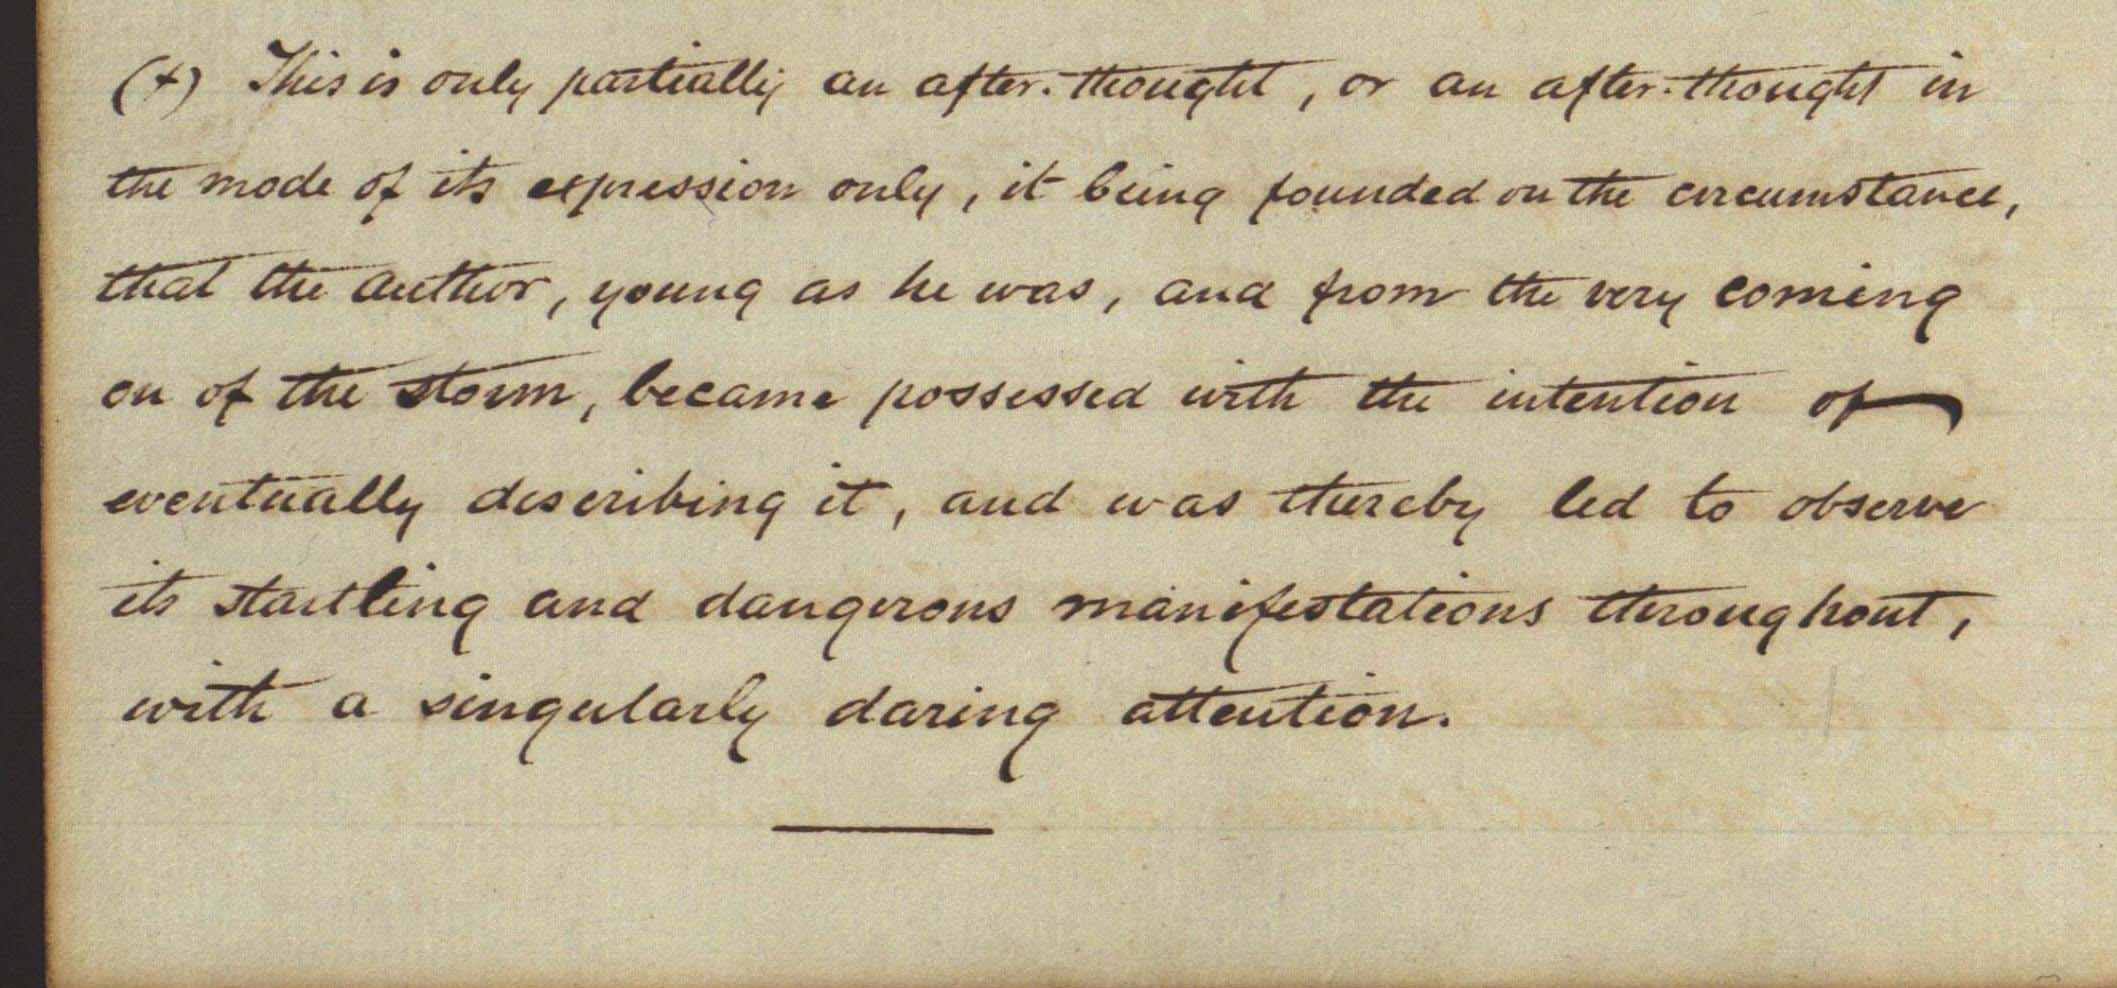 (+) This is only partially an after-thought, or an after-thought in
the mode of its expression only, it being founded on the circumstance,
that the author, young as he was, and from the very coming
on of the storm, became possessed with the intention of
eventually describing it, and was thereby led to observe
its startling and dangerous manifestations throughout,
with a singularly daring attention.